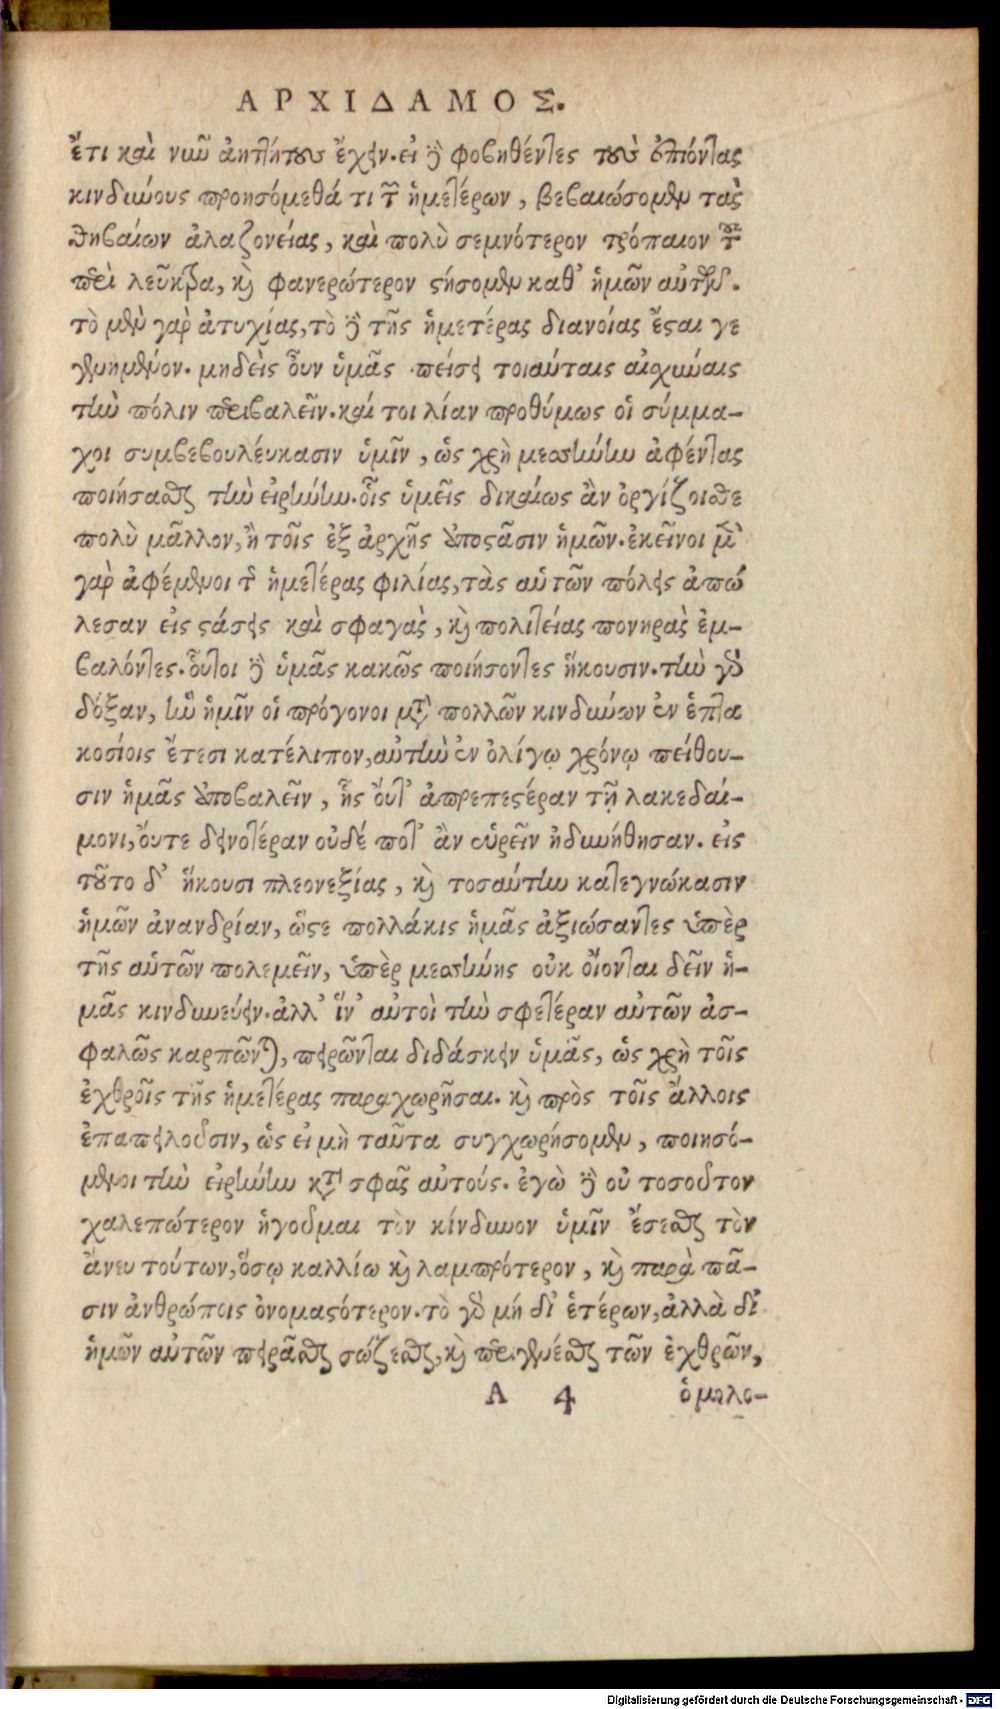 ΑΡΧΙΔΑΜΟΣ.
ἔτι καὶ νῦν ἀηττήτους ἔχειν. εἰ δὲ φοβηθέντες τοὺς ἐπιόντας
κινδύνους προησόμεθά τι τῶν ἡμετέρων, βεβαιώσομεν τὰς
θηβαίων ἀλαζονείας, καὶ πολὺ σεμνότερον τρόπαιον τοῦ
περὶ λεῦκτρα, καὶ φανερώτερον στήσομεν καθ' ἡμῶν αὐτῶν.
τὸ μὲν γὰρ ἀτυχίας, τὸ δὲ τῆς ἡμετέρας διανοίας ἔσται γε
γενημένον. μηδεὶς οὖν ὑμᾶς πείσῃ τοιαύταις αἰσχύναις
τὴν πόλιν περιβαλεῖν. καί τοι λίαν προθύμως οἱ σύμμα-
χοι συμβεβουλέυκασιν ὑμῖν, ὡς χρὴ μεσσήνην ἀφέντας
ποιήσασθαι τὴν εἰρήνην. οἷς ὑμεῖς δικαίως ἂν ὀργίζοισθε
πολὺ μᾶλλον, ἢ τοῖς ἐξ ἀρχῆς ἀποστᾶσιν ἡμῶν. ἐκεῖνοι μὲν
γὰρ ἀφέμενοι τῆς ἡμετέρας φιλίας, τὰς αὑτῶν πόλεις ἀπώ
λεσαν εἰς στάσεις καὶ σφαγὰς, καὶ πολιτείας πονηρὰς ἐμ-
βαλόντες. οὗτοι δὲ ὑμᾶς κακῶς ποιήσοντες ἥκουσιν. τὴν γὰρ
δόξαν, ἣν ἡμῖν οἱ πρόγονοι μετὰ πολλῶν κινδύνων ἐν ἑπτα
κοσίοις ἔτεσι κατέλιπον, αὐτὴν ἐν ὀλίγῳ χρόνῳ πείθου-
σιν ἡμᾶς ἀποβαλεῖν, ἧς οὔτ' ἀπρεπεστέραν τῇ λακεδαί-
μονι, ὄυτε δεινοτέραν οὐδέ ποτ' ἂν εὑρεῖν ἠδυνήθησαν. εἰς
τοῦτο δ' ἥκουσι πλεονεξίας, καὶ τοσαύτην κατεγνώκασιν
ἡμῶν ἀνανδρίαν, ὥστε πολλάκις ἡμᾶς ἀξιώσαντες ὑπὲρ
τῆς αὑτῶν πολεμεῖν, ὑπὲρ μεσσήνης οὐκ ὄιονται δεῖν ἡ-
μᾶς κινδυνεύειν. ἀλλ' ἵν' αὐτοὶ τὴν σφετέραν αὐτῶν ἀσ-
φαλῶς καρπῶνται, πειρῶνται διδάσκειν ὑμᾶς, ὡς χρὴ τοῖς
ἐχθροῖς τῆς ἡμετέρας παραχωρῆσαι. καὶ πρὸς τοῖς ἄλλοις
ἐπαπειλοῦσιν, ὡς εἰ μὴ ταῦτα συγχωρήσομεν, ποιησό-
μενοι τὴν εἰρήνην κατὰ σφᾶς αὐτούς. ἐγὼ δὲ οὐ τοσοῦτον
χαλεπώτερον ἡγοῦμαι τὸν κίνδυνον ὑμῖν ἔσεσθαι τὸν
ἄνευ τούτων, ὅσῳ καλλίω καὶ λαμπρότερον, καὶ παρὰ πᾶ-
σιν ἀνθρώποις ὀνομαστότερον. τὸ γὰρ μή δι' ἑτέρων, ἀλλὰ δι'
ἡμῶν αὐτῶν πειρᾶσθαι σώζεσθαι, καὶ περιγενέσθαι τῶν ἐχθρῶν,
A 4 ὁμολο-
Digitalisierung gefördert durch die Deutsche Forschungsgemeinschaft - DFG